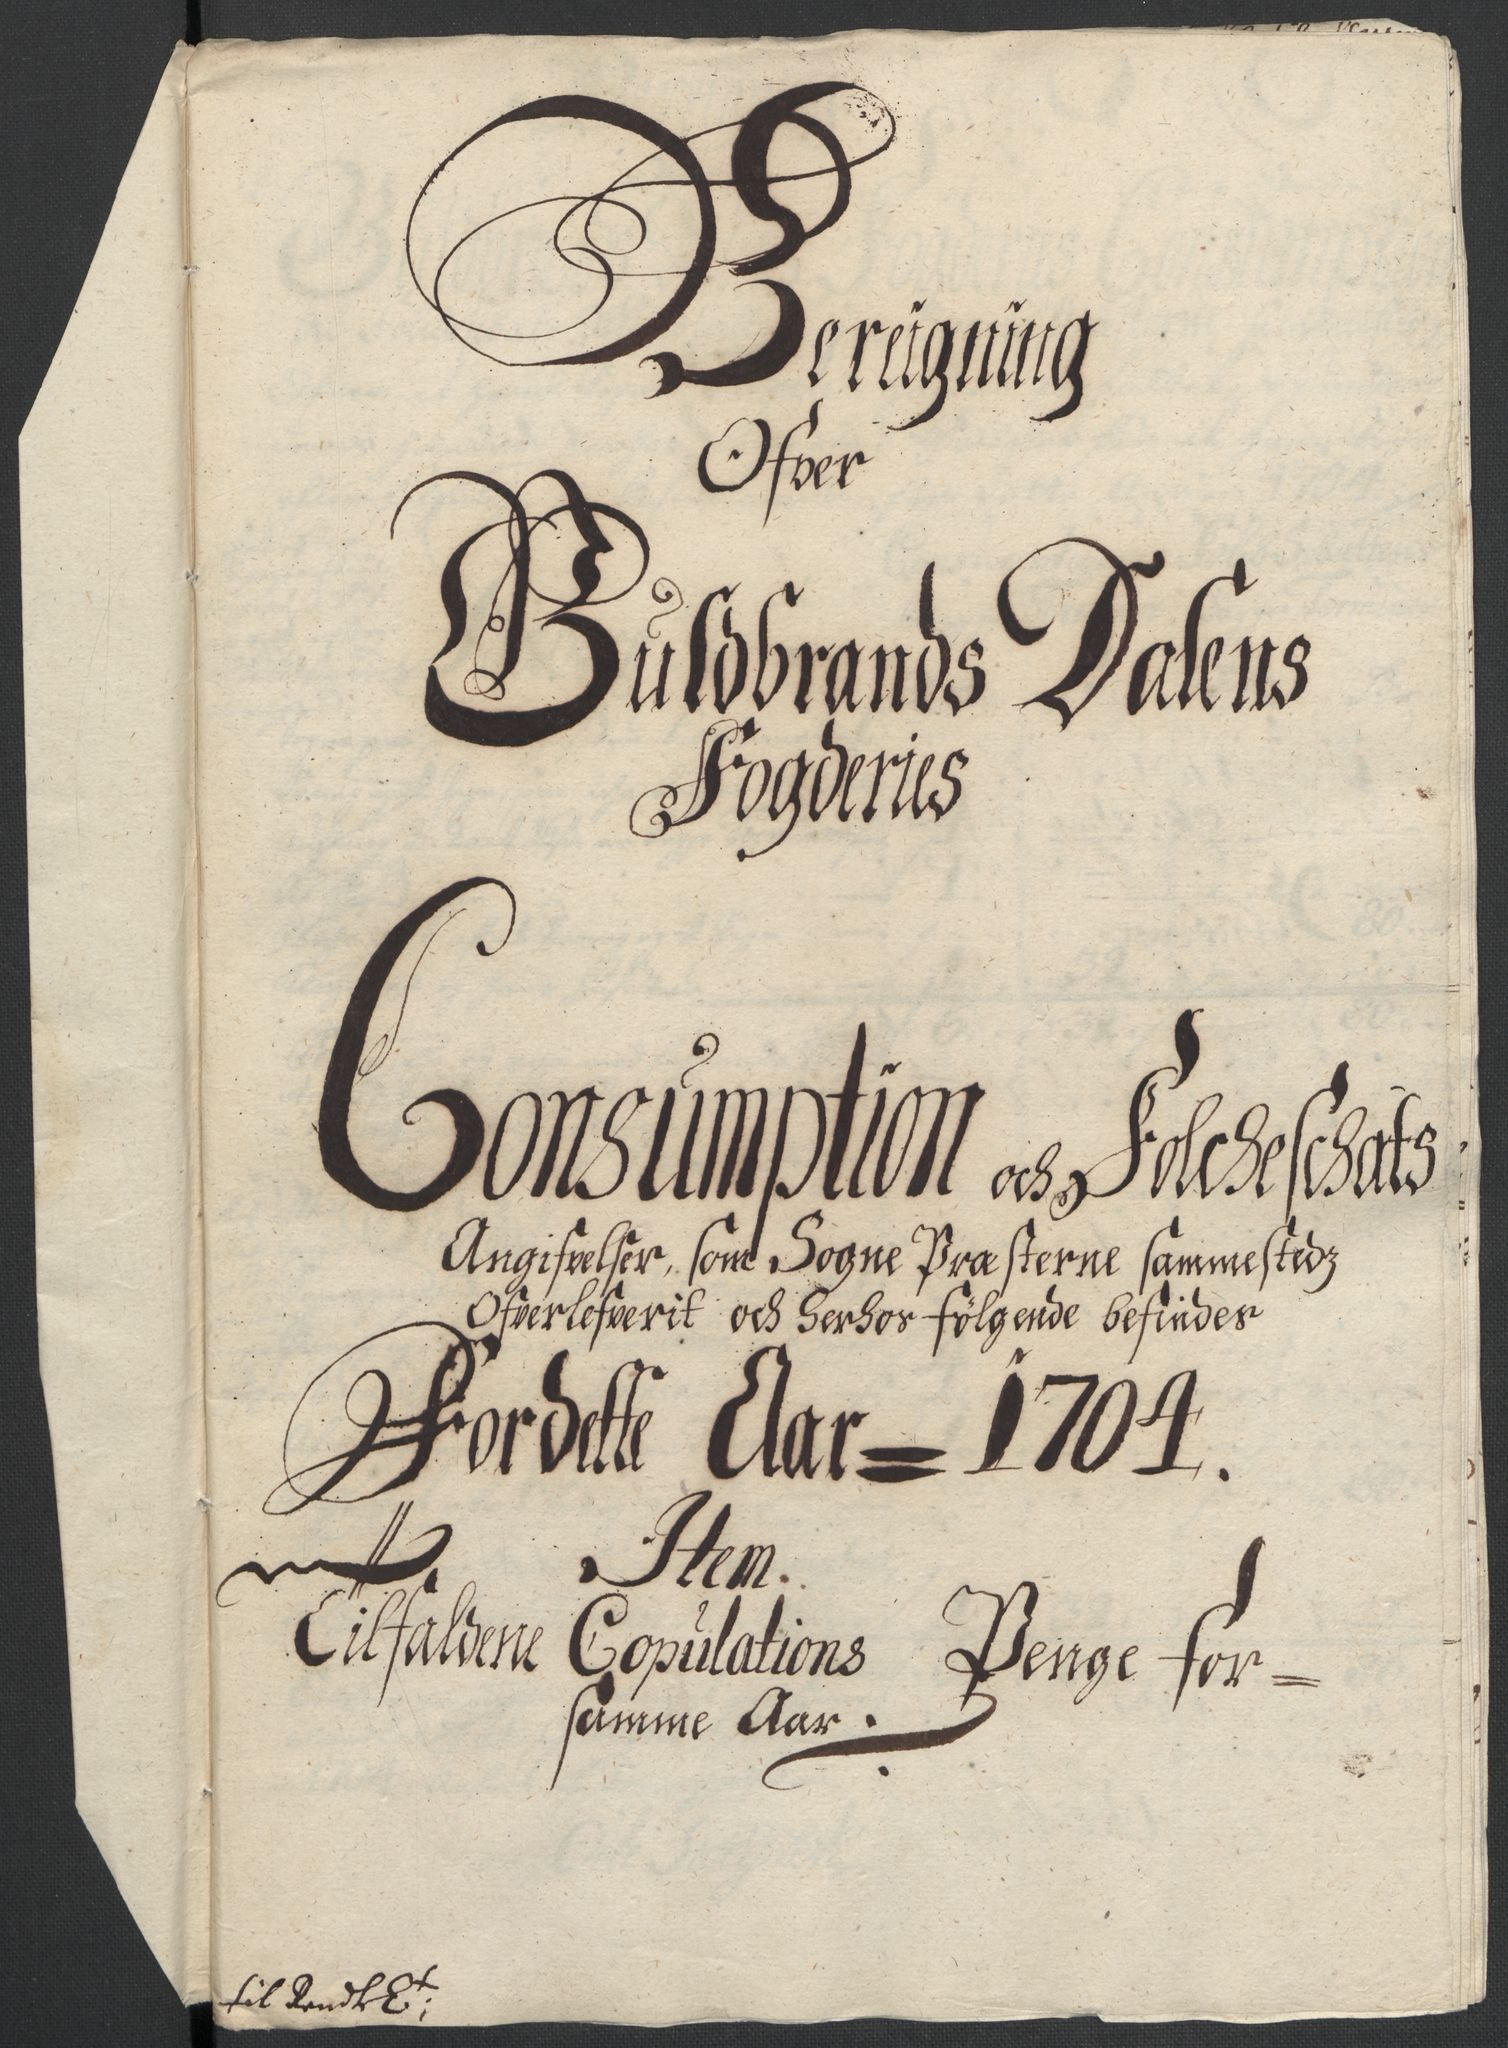 Bereigning
Ofver
Guldbrands Dalens
Fogderies
Consumption och Folcheschats
Angifvelser, som Sogne Præsterne sammestedz
Ofverlefverit och herhos følgende befindes
For dette Aar = 1704.
Item.
Tilfaldene Copulations Penge for=
samme Aar.
til